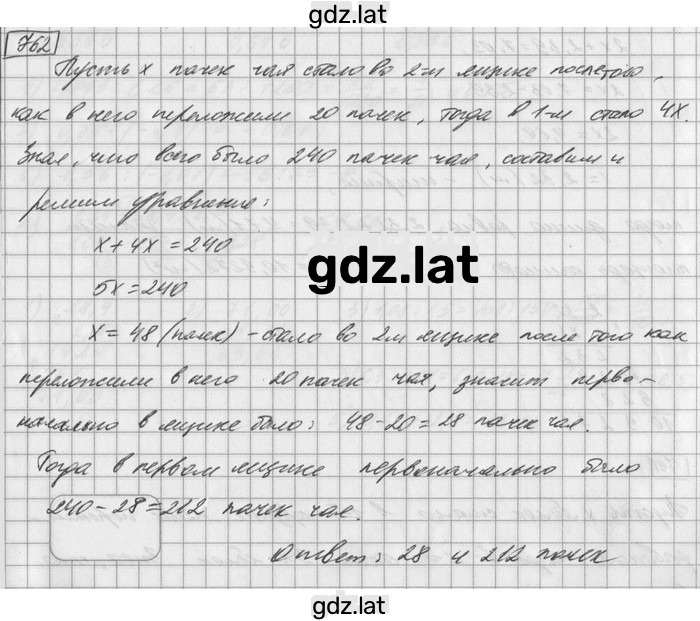 gdz.lat
762
Пусть x пачек чая стало во 2-м ящике после того,
как в него переложили 20 пачек, тогда в 1-м стало 4x.
Зная, что всего было 240 пачек чая, составим и
решим уравнение:
x + 4x = 240
5x = 240
gdz.lat
x = 48 (пачек) - стало во 2м ящике после того как
переложили в него 20 пачек чая, значит перво-
начально в ящике было: 48 - 20 = 28 пачек чая.
Тогда в первом ящике первоначально было
240 - 28 = 212 пачек чая.
Ответ: 28 и 212 пачек
gdz.lat